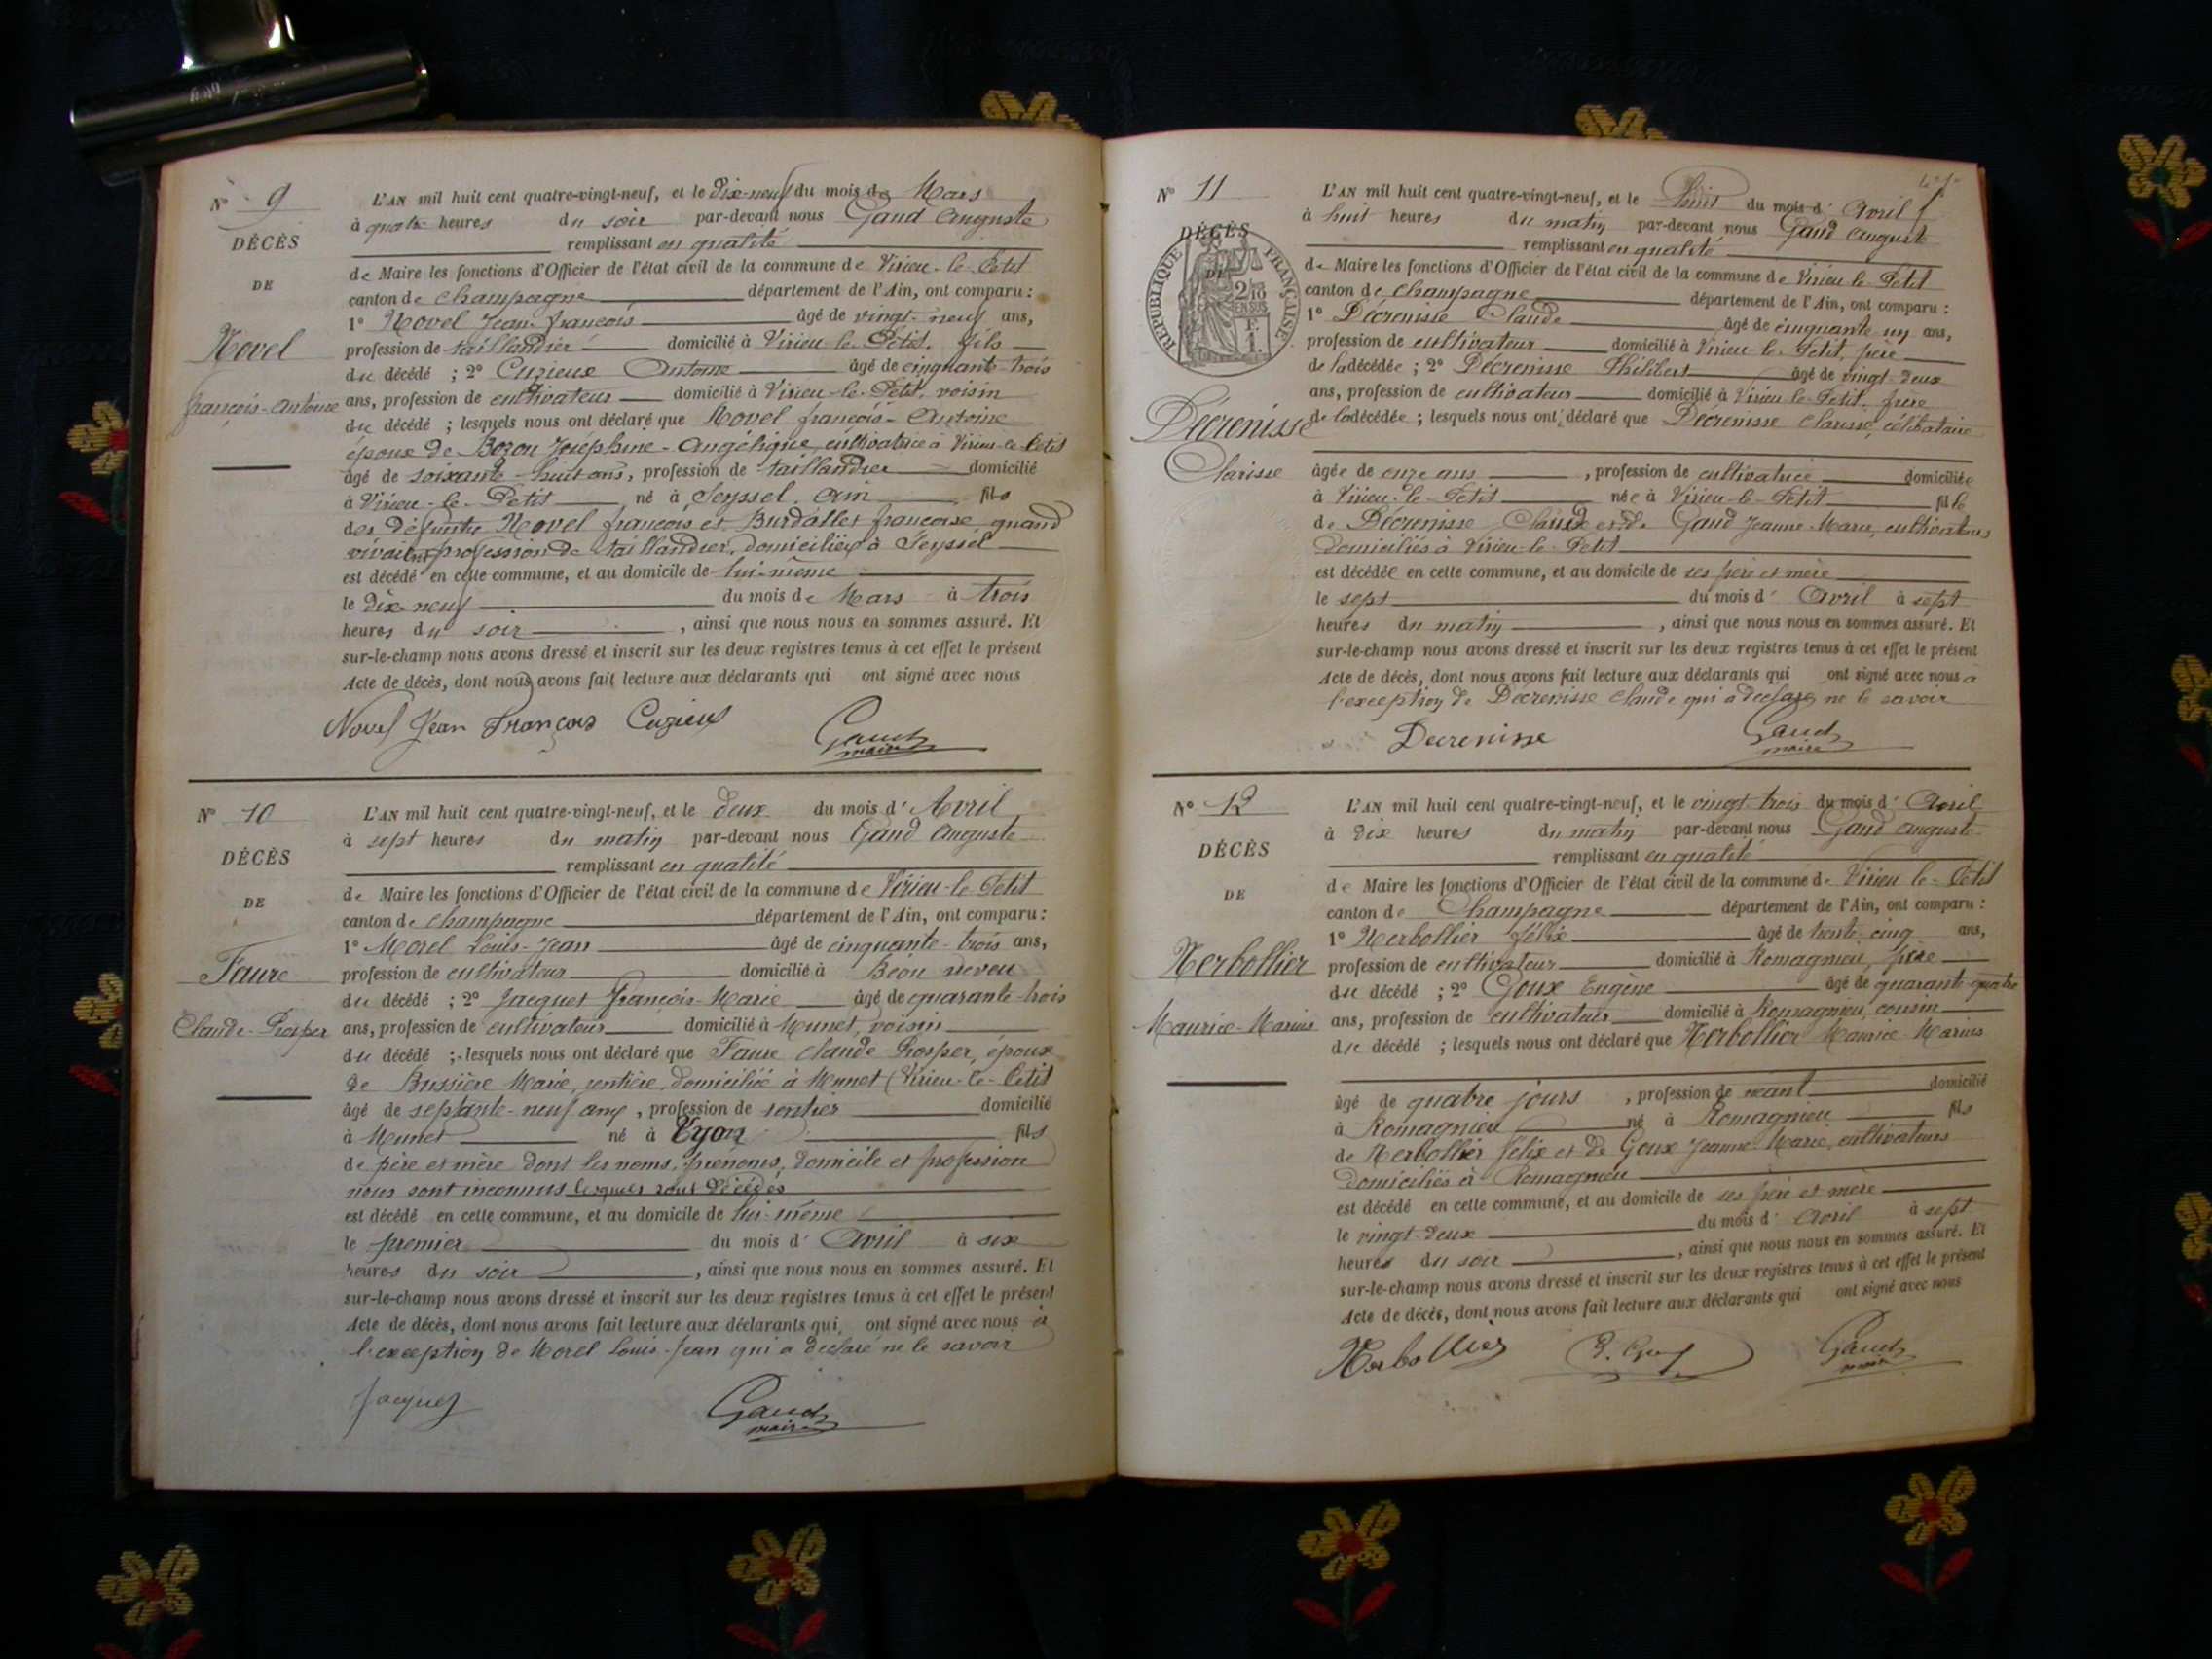 N° 9
DÉCÈS
DE
Novel
François-Antoine
L'AN mil huit cent quatre-vingt-neuf, et le dix-neuf du mois de Mars
à quatre heures du soir par-devant nous Gaud Auguste
remplissant en qualité
de Maire les fonctions d'Officier de l'état civil de la commune de Virieu-le-Petit
canton de Champagne département de l'Ain, ont comparu :
1° Novel Jean-François âgé de vingt-neuf ans,
profession de taillandier domicilié à Virieu-le-Petit, fils
du décédé ; 2° Cuzieux Antoine âgé de cinquante-trois
ans, profession de cultivateur domicilié à Virieu-le-Petit, voisin
du décédé ; lesquels nous ont déclaré que Novel François-Antoine
époux de Bozon Joséphine-Angélique, cultivatrice à Virieu-le-Petit
âgé de soixante-huit ans, profession de taillandier domicilié
à Virieu-le-Petit né à Seyssel, Ain fils
des défunts Novel François et Burdallet Françoise, quand
vivaient profession de taillandier, domiciliés à Seyssel
est décédé en cette commune, et au domicile de lui-même
le dix-neuf du mois de Mars à trois
heures du soir, ainsi que nous nous en sommes assuré. Et
sur-le-champ nous avons dressé et inscrit sur les deux registres tenus à cet effet le présent
Acte de décès, dont nous avons fait lecture aux déclarants qui ont signé avec nous
Novel Jean François Cuzieux Gaud
maire
N° 10
DÉCÈS
DE
Faure
Claude-Prosper
L'AN mil huit cent quatre-vingt-neuf, et le deux du mois d'Avril
à sept heures du matin par-devant nous Gaud Auguste
remplissant en qualité
de Maire les fonctions d'Officier de l'état civil de la commune de Virieu-le-Petit
canton de Champagne département de l'Ain, ont comparu :
1° Morel Louis-Jean âgé de cinquante-trois ans,
profession de cultivateur domicilié à Béon neveu
du décédé ; 2° Jacquet François-Marie âgé de quarante-trois
ans, profession de cultivateur domicilié à Munet, voisin
du décédé ; lesquels nous ont déclaré que Faure Claude-Prosper, époux
de Bussière Marie, rentière, domiciliée à Munet (Virieu-le-Petit
âgé de septante-neuf ans, profession de rentier domicilié
à Munet né à Lyon fils
de père et mère dont les noms, prénoms, domicile et profession
nous sont inconnus lesquels sont décédés
est décédé en cette commune, et au domicile de lui-même
le premier du mois d'Avril à six
heures du soir, ainsi que nous nous en sommes assuré. Et
sur-le-champ nous avons dressé et inscrit sur les deux registres tenus à cet effet le présent
Acte de décès, dont nous avons fait lecture aux déclarants qui, ont signé avec nous à
l'exception de Morel Louis-Jean qui a déclaré ne le savoir
Jacquet Gaud
maire
N° 11
DÉCÈS
DE
RÉPUBLIQUE FRANÇAISE
Décrenisse
Clarisse
L'AN mil huit cent quatre-vingt-neuf, et le huit du mois d'Avril
à huit heures du matin par-devant nous Gaud Auguste
remplissant en qualité
de Maire les fonctions d'Officier de l'état civil de la commune de Virieu-le-Petit
canton de Champagne département de l'Ain, ont comparu :
1° Décrenisse Claude âgé de cinquante-un ans,
profession de cultivateur domicilié à Virieu-le-Petit, père
de la décédée ; 2° Décrenisse Philibert âgé de vingt-deux
ans, profession de cultivateur domicilié à Virieu-le-Petit, frère
de la décédée ; lesquels nous ont déclaré que Décrenisse Clarisse, célibataire
âgée de onze ans, profession de cultivatrice domiciliée
à Virieu-le-Petit née à Virieu-le-Petit fille
de Décrenisse Claude et de Gaud Jeanne-Marie, cultivateurs
domiciliés à Virieu-le-Petit
est décédée en cette commune, et au domicile de ses père et mère
le sept du mois d'Avril à sept
heures du matin, ainsi que nous nous en sommes assuré. Et
sur-le-champ nous avons dressé et inscrit sur les deux registres tenus à cet effet le présent
Acte de décès, dont nous avons fait lecture aux déclarants qui ont signé avec nous à
l'exception de Décrenisse Claude qui a déclaré ne le savoir
Decrenisse Gaud
maire
N° 12
DÉCÈS
DE
Herbollier
Maurice-Marius
L'AN mil huit cent quatre-vingt-neuf, et le vingt-trois du mois d'Avril
à dix heures du matin par-devant nous Gaud Auguste
remplissant en qualité
de Maire les fonctions d'Officier de l'état civil de la commune de Virieu-le-Petit
canton de Champagne département de l'Ain, ont comparu :
1° Herbollier Félix âgé de trente-cinq ans,
profession de cultivateur domicilié à Romagnieu, père
du décédé ; 2° Goux Eugène âgé de quarante-quatre
ans, profession de cultivateur domicilié à Romagnieu, cousin
du décédé ; lesquels nous ont déclaré que Herbollier Maurice Marius
âgé de quatre jours, profession de néant domicilié
à Romagnieu né à Romagnieu fils
de Herbollier Félix et de Goux Jeanne-Marie, cultivateurs
domiciliés à Romagnieu
est décédé en cette commune, et au domicile de ses père et mère
le vingt-deux du mois d'Avril à sept
heures du soir, ainsi que nous nous en sommes assuré. Et
sur-le-champ nous avons dressé et inscrit sur les deux registres tenus à cet effet le présent
Acte de décès, dont nous avons fait lecture aux déclarants qui ont signé avec nous
Herbollier Gaud
maire